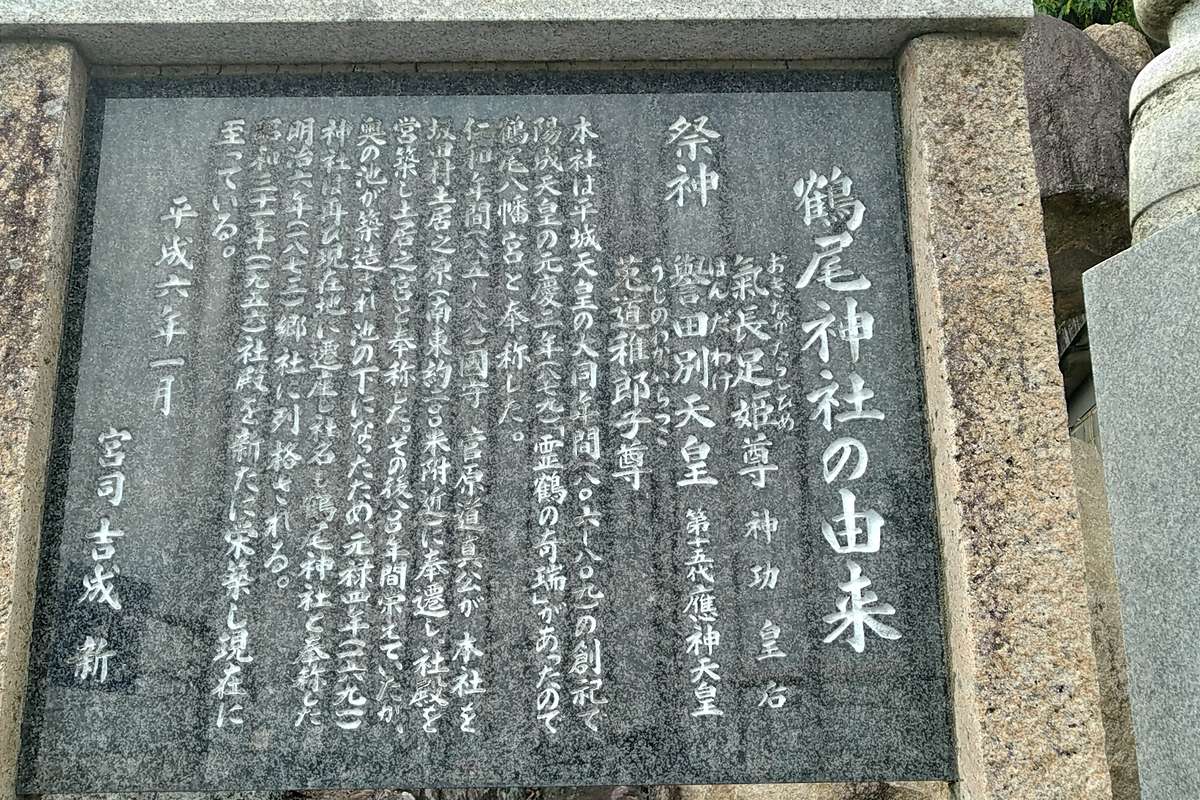 鶴尾神社の由来
祭神
おきながたらしひめ
氣長足姫尊 神功皇后
ほんだわけ
譽田別天皇 第十五代應神天皇
うじのわかいらつこ
菟道稚郎子尊
本社は平城天皇の大同年間(八〇六〜八〇九)の創祀で
陽成天皇の元慶三年(八七九)「霊鶴の奇瑞」があったので
鶴尾八幡宮と奉称した。
仁和年間(八八五〜八八八)国守 菅原道真公が 本社を
坂田村土居之原(南東約一〇〇米附近)に奉遷し社殿を
営築し土居之宮と奉称した。その後八〇〇年間栄えていたが、
奥の池が築造され池の下になったため元禄四年(一六九一)
神社は再び現在地に遷座し社名も鶴尾神社と奉称した
明治六年(一八七三)郷社に列格される。
昭和三十一年(一九五六)社殿を新たに栄築し現在に
至っている。
平成六年一月
宮司 吉成 新